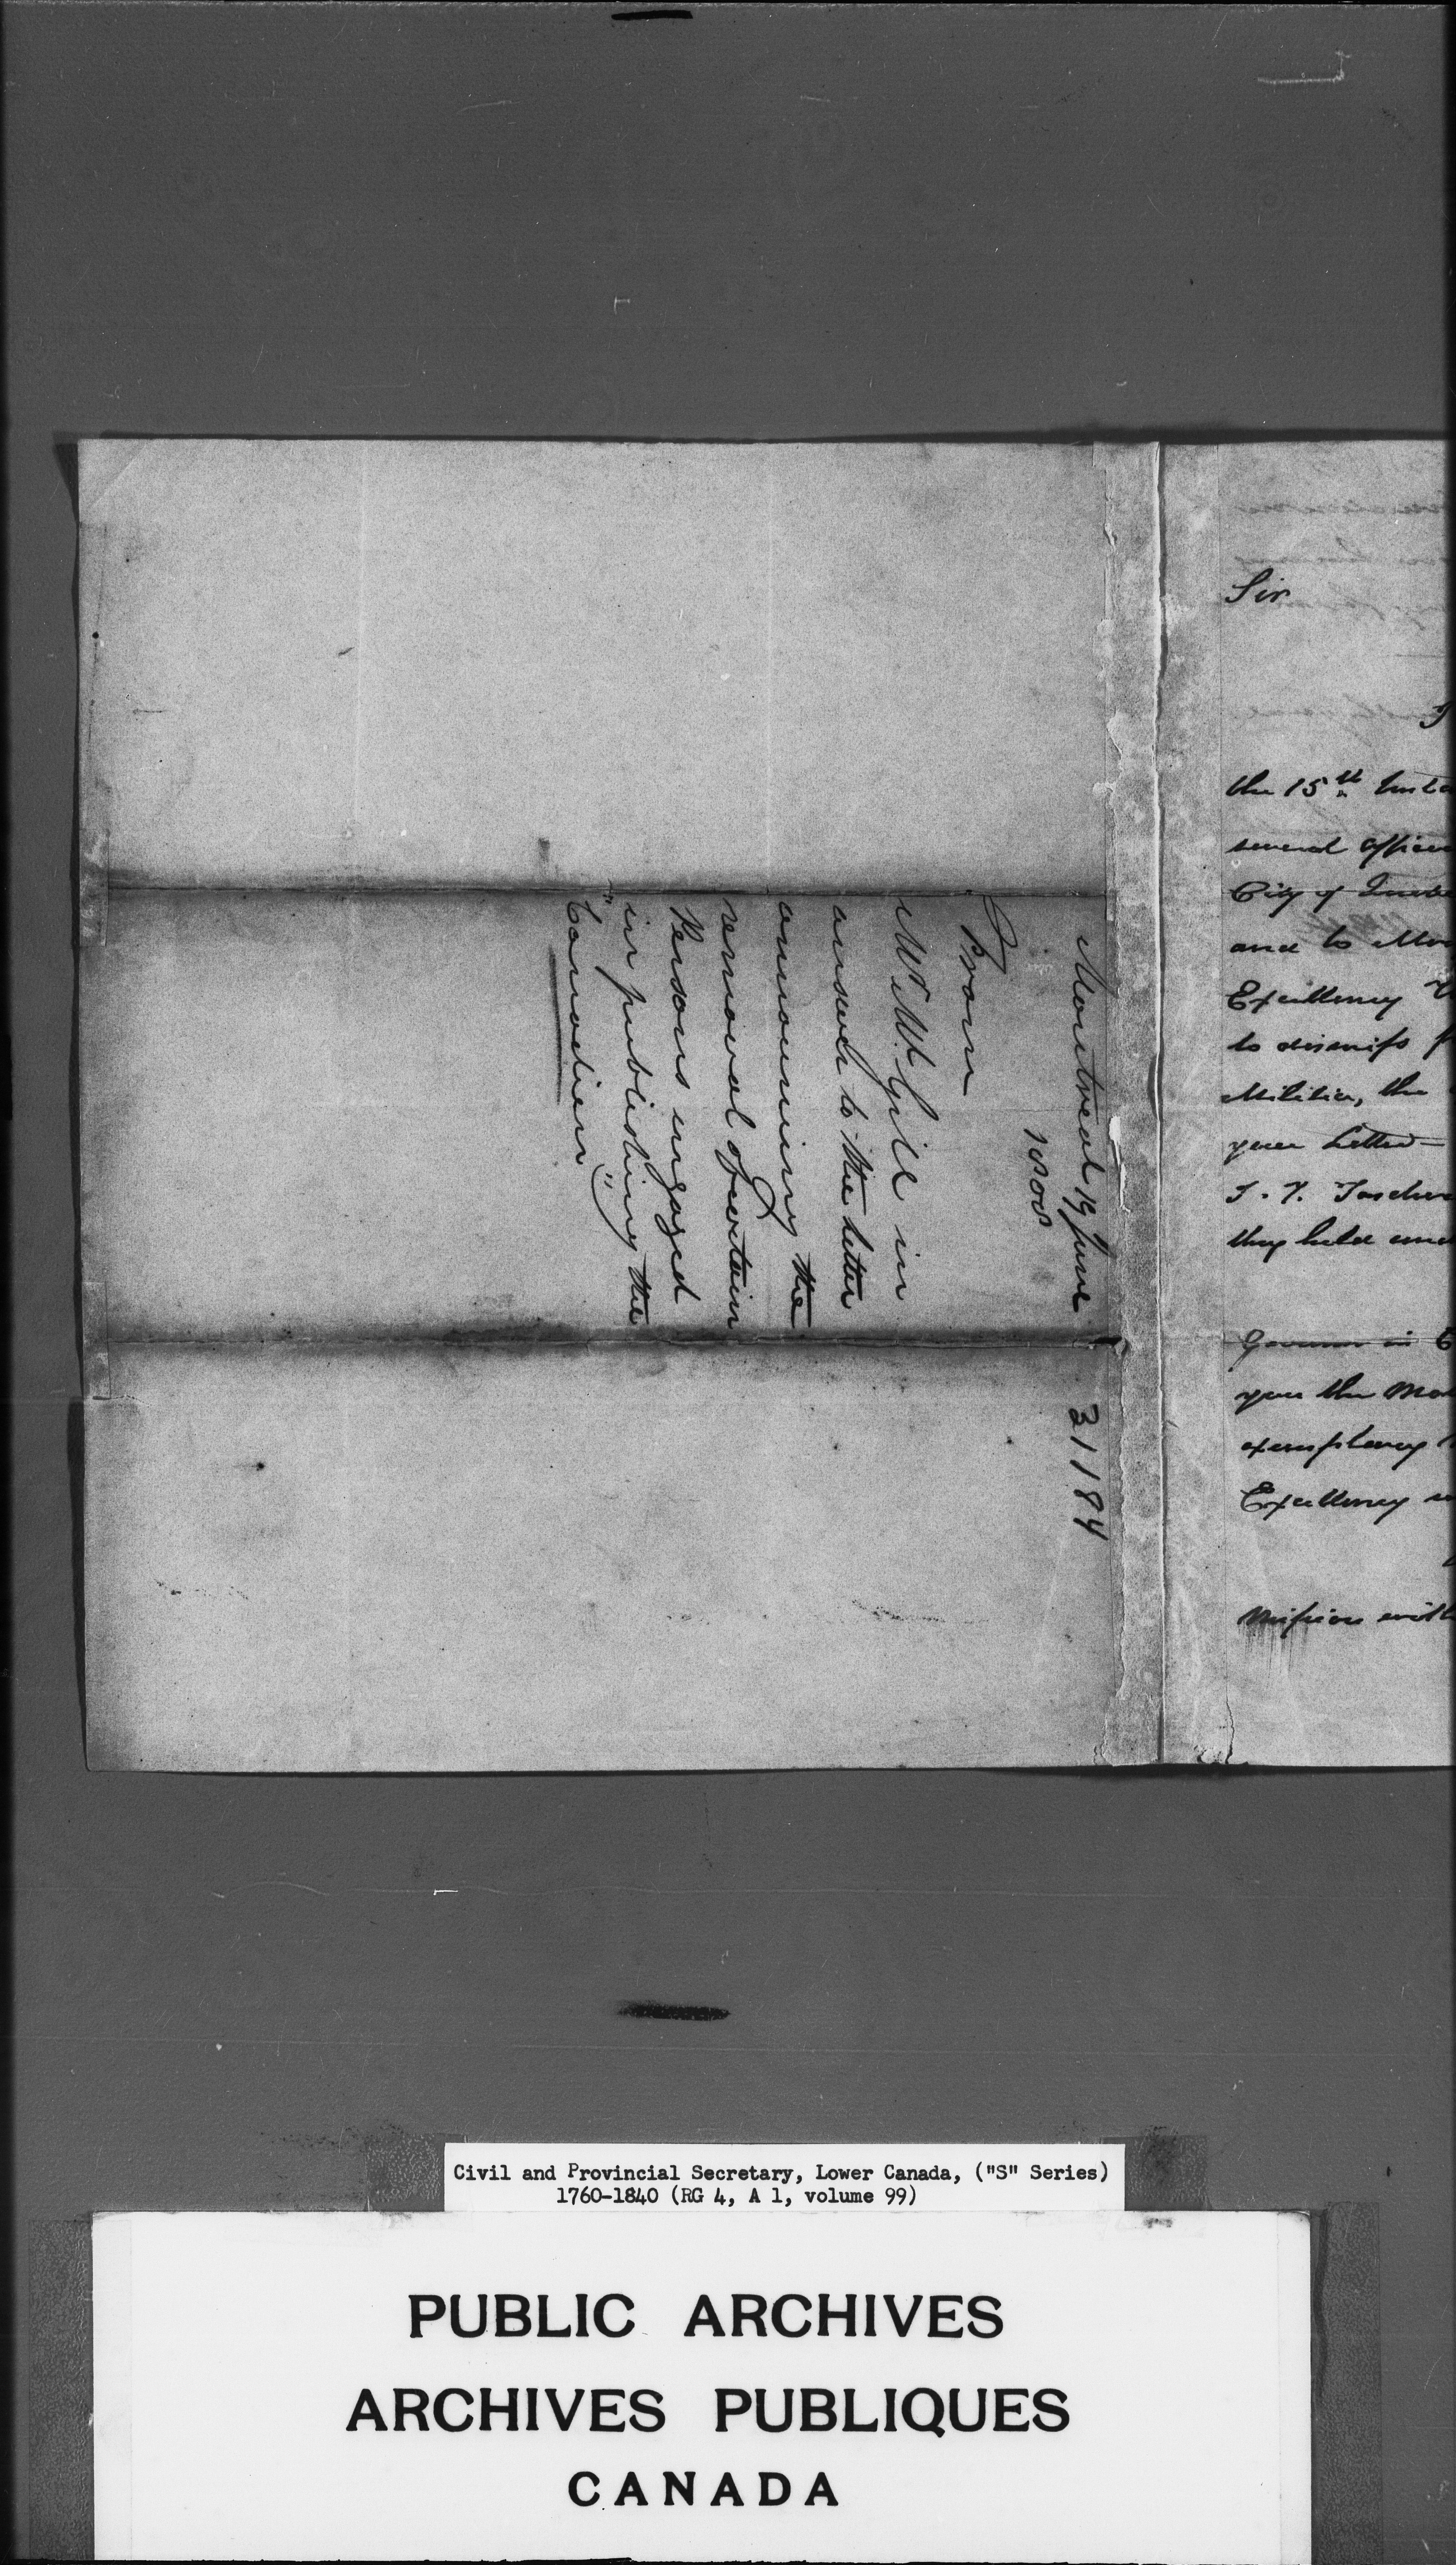 Montreal 19 June
1808
From
Mr. McGill in
answer to the letter
announcing the
removal of certain
Persons engaged
in publishing the
"Canadien"
31184
Sir
the 15th Insta
several officer
City of Quebe
and to
Excellency
to dismiss
Militia, the
your Letter
J. T. Tascher
they held und
Governor in
you the mo
exemplary
Excellency
mission with
Civil and Provincial Secretary, Lower Canada, ("S" Series)
1760-1840 (RG 4, A 1, volume 99)
PUBLIC ARCHIVES
ARCHIVES PUBLIQUES
CANADA